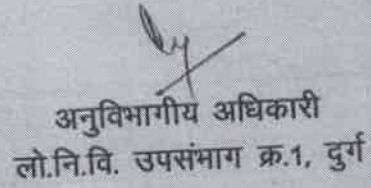 अनुविभागीय अधिकारी
लो.नि.वि. उपसंभाग क्र.1, दुर्ग